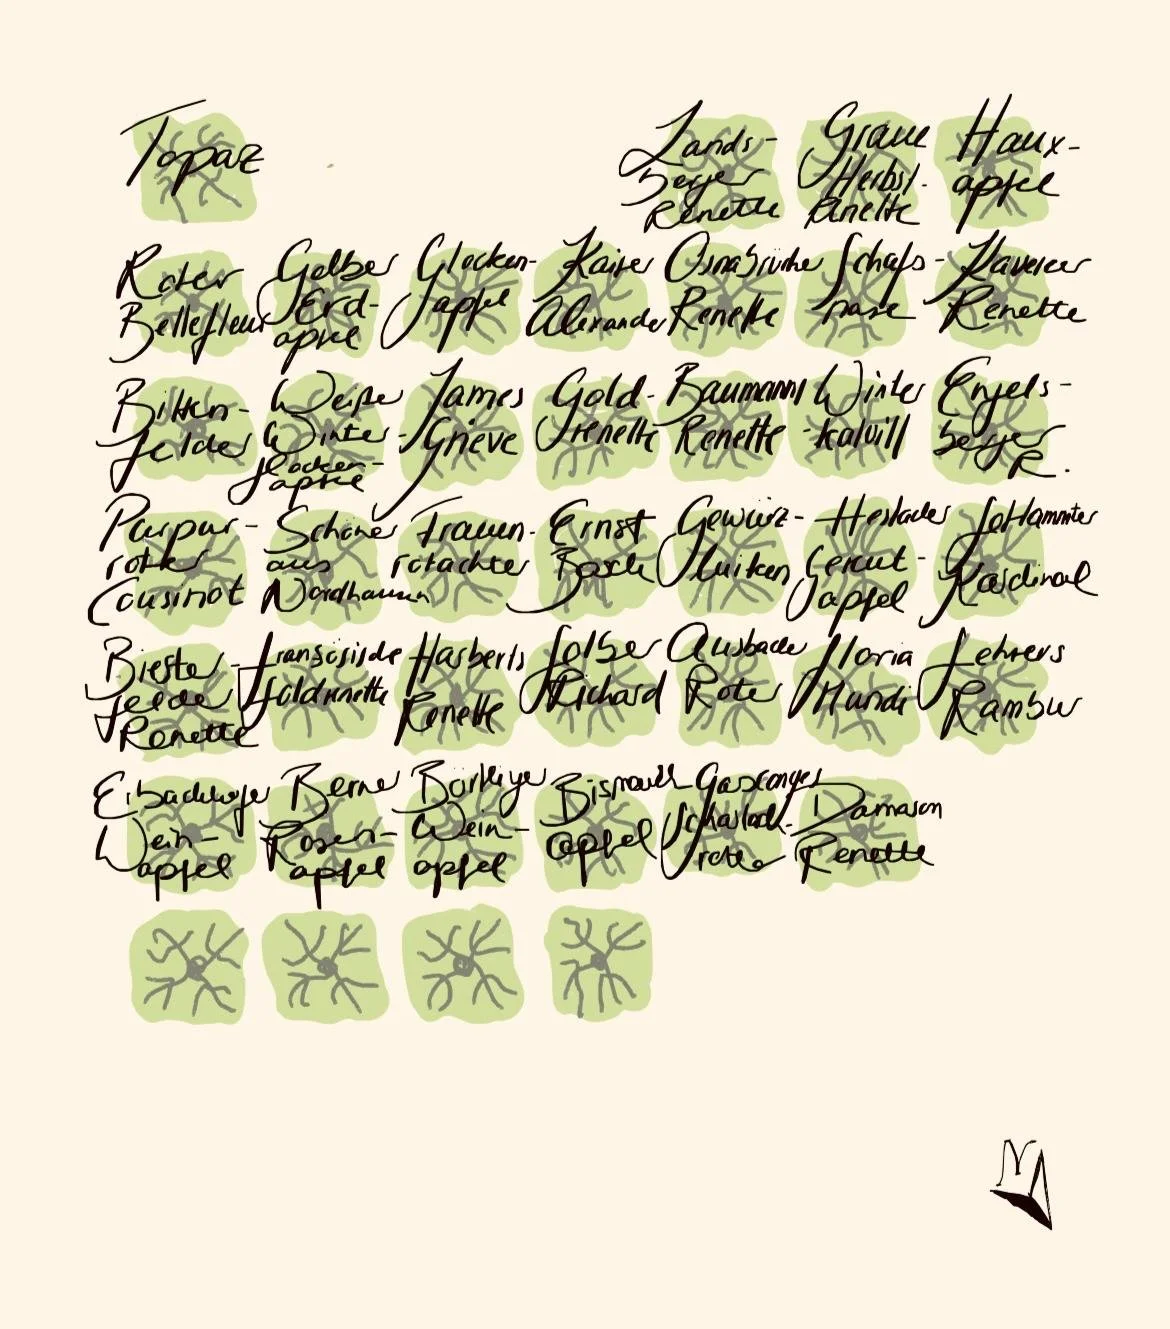 Topaz
Lands-
berger
Renette
Graue
Herbst-
renette
Haux-
apfel
Roter
Bellefleur
Gelber
Erd-
apfel
Glocken-
apfel
Kaiser
Alexander
Osnabrücker
Renette
Schafs-
nase
Zaverer
Renette
Bitten-
felder
Weißer
Winter-
glocken-
apfel
James
Grieve
Gold-
renette
Baumanns
Renette
Winter
kalvill
Engels-
berger
R.
Purpur-
roter
Cousinot
Schöner
aus
Nordhausen
Frauen-
rotacher
Ernst
Bosch
Gewürz-
luiken
Heslacher
Gereut-
apfel
Jakob
Kardinal
Biester-
felder
Renette
Französische
Goldrenette
Harberts
Renette
Gelber
Richard
Ausbacher
Roter
Gloria
Mundi
Lehrers
Rambur
Börtlinger
Wein-
apfel
Berner
Rosen-
apfel
Bismarck
apfel
Gascoynes
Scharlach-
roter
Damason
Renette